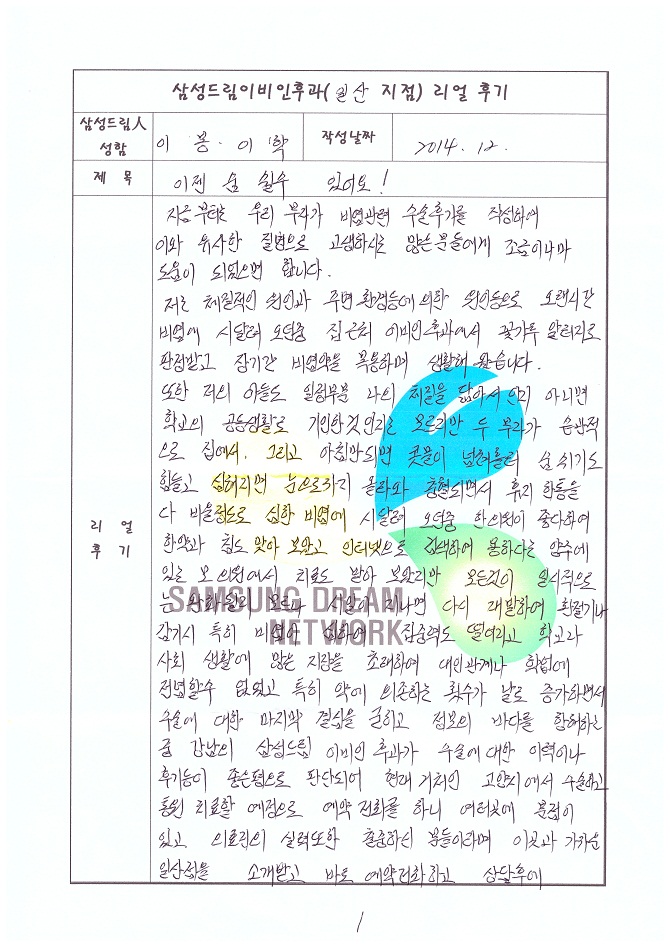 삼성드림이비인후과( 일산 지점) 리얼 후기
삼성드림人 성함
이 봉·이 학
작성날짜
2014. 12.
제 목
이젠 숨 쉴수 있어요!
리 얼 후 기
지금부터는 우리 부자가 비염관련 수술후기를 작성하여
이와 유사한 질병으로 고생하시는 많은분들에게 조금이나마
도움이 되었으면 합니다.
저는 체질적인 원인과 주변환경등에의한 원인등으로 오랜시간
비염에 시달려 오던중 집근처 이비인후과에서 꽃가루 알러지로
판정받고 장기간 비염약을 복용하며 생활해 왔습니다.
또한 저의 아들도 일정부분 나의 체질을 닮아서인지 아니면
학교의 공동생활로 기인한것인지는 모르지만 두 부자가 습관적
으로 집에서. 그리고 아침만되면 콧물이 넘쳐흘러 숨쉬기도
힘들고 심해지면 눈으로까지 올라와 충혈되면서 휴지 한통을
다 비울정도로 심한 비염에 시달려 오던중 한의원이 좋다하여
한약과 침도 맞아 보았고 인터넷으로 검색하여 용하다는 양주에
있는 모 의원에서 치료도 받아 보았지만 모든것이 일시적으로
는 완화 될지 모르나 시일이 지나면 다시 재발하여 환절기나
감기시 특히 비염이 심하여 집중력도 떨어지고 학교과
사회 생활에 많은 지장을 초래하여 대인관계나 학업에
전념할수 없었고 특히 약에 의존하는 횟수가 날로 증가하면서
수술에 대한 마지막 결심을 굳히고 정보의 바다를 항해하는
중 강남의 삼성드림 이비인후과가 수술에대한 이력이나
후기등이 좋은평으로 판단되어 현재 거처인 고양시에서 수술하고
통원 치료할 예정으로 예약전화를 하니 여러곳에 분점이
있고 의료진의 실력또한 출중하신 분들이라며 이곳과 가까운
일산점을 소개받고 바로 예약전화하고 상담후에
SAMSUNG DREAM
NETWORK
1